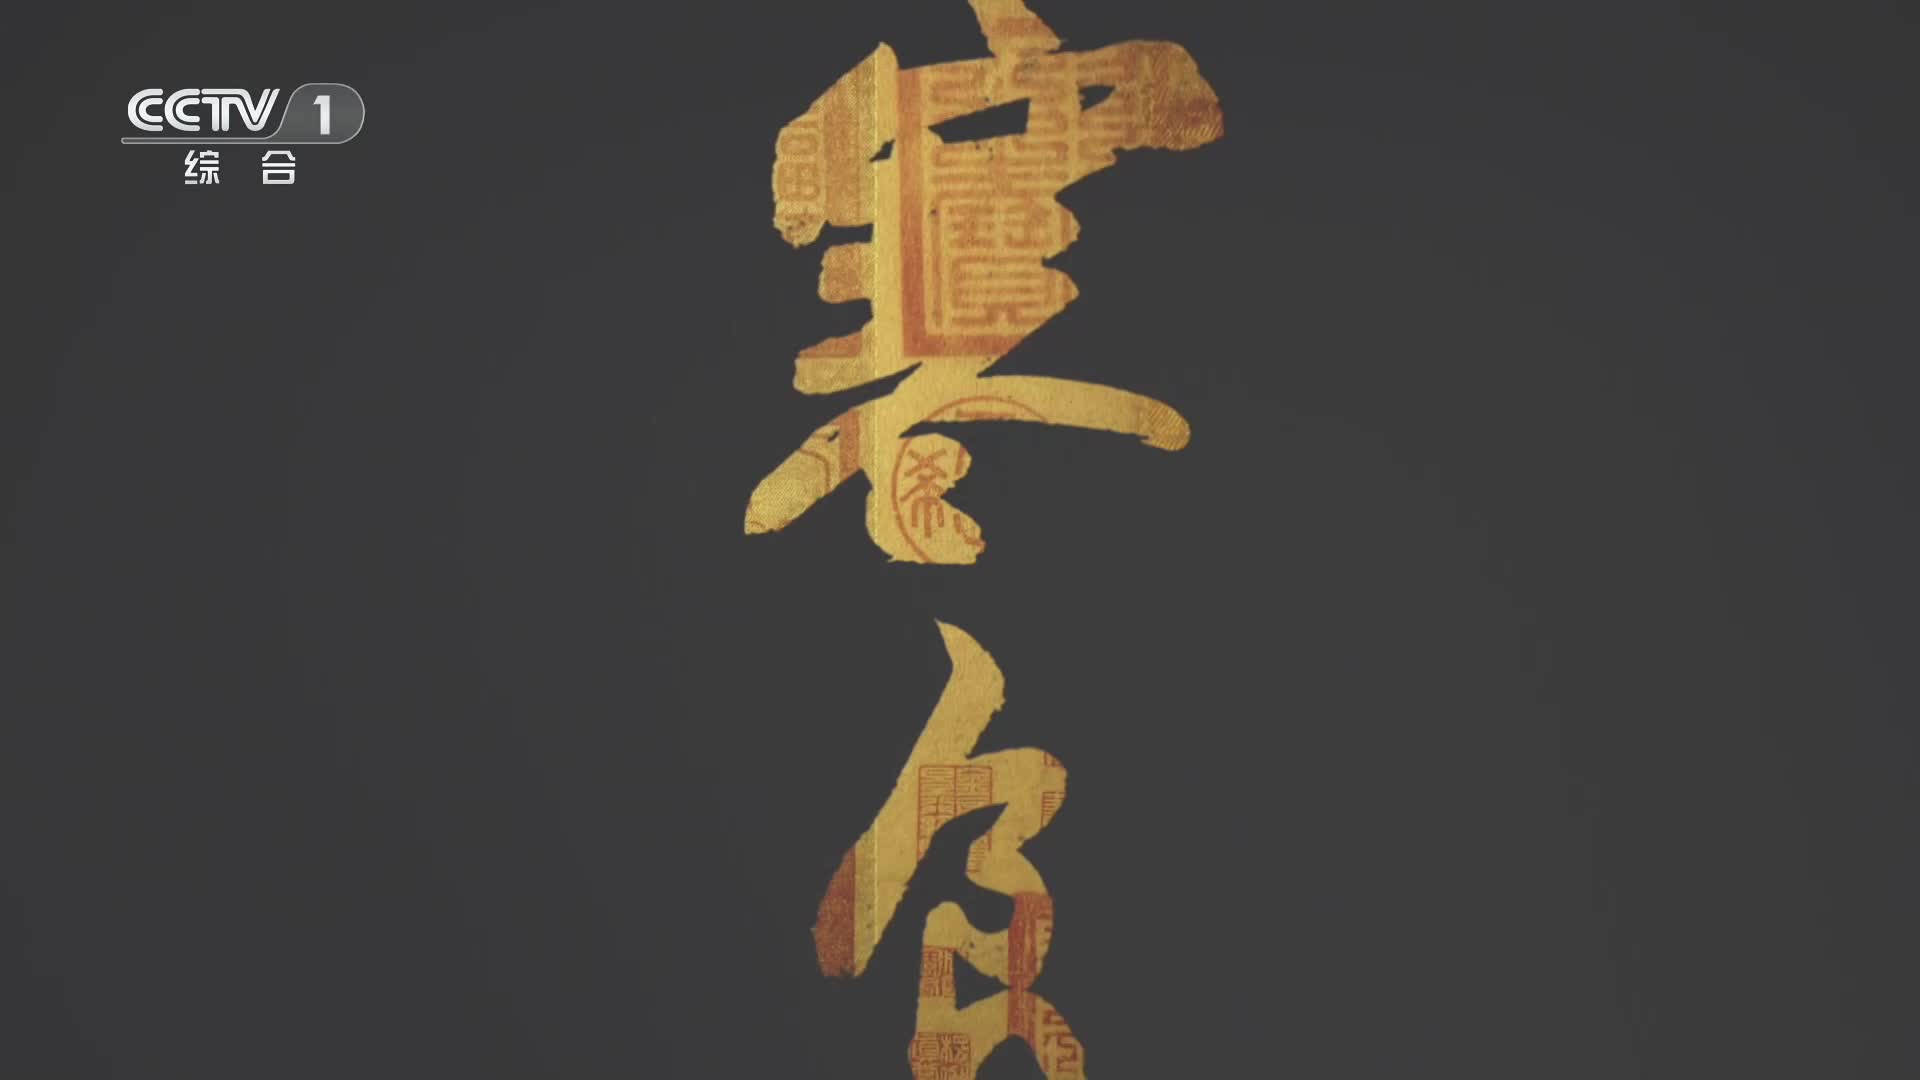 CCTV 1
综合
寒
食